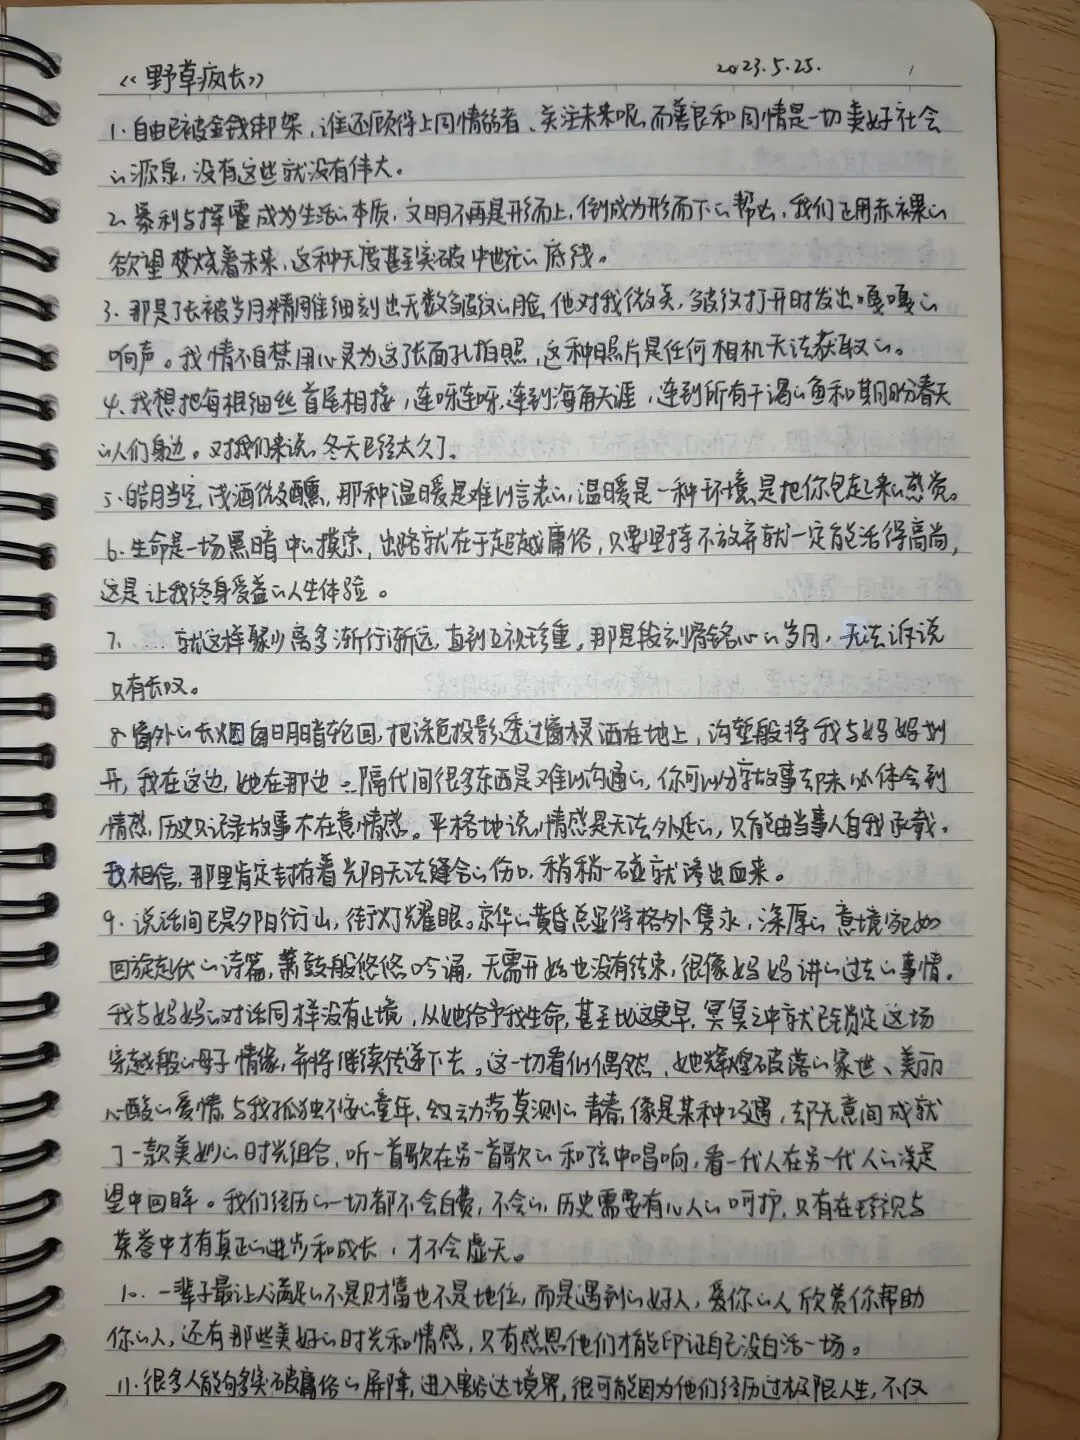 《野草疯长》 2023.5.25. 1
1. 自由已被金钱绑架，谁还顾得上同情弱者、关注未来呢，而善良和同情是一切美好社会
的源泉，没有这些就没有伟大。
2. 暴利与挥霍成为生活的本质，文明不再是形而上，倒成为形而下的帮凶，我们正用赤裸的
欲望焚烧着未来，这种无度甚至突破中世纪的底线。
3. 那是了张被岁月精雕细刻出无数皱纹的脸，他对我微笑，皱纹打开时发出嘎嘎的
响声。我情不自禁用心灵为这张面孔拍照，这种照片是任何相机无法获取的。
4. 我想把每根细丝首尾相接，连呀连呀，连到海角天涯，连到所有干渴的鱼和期盼春天
的人们身边。对我们来说，冬天已经太久了。
5. 皓月当空，浅酒微醺，那种温暖是难以言表的，温暖是一种环境，是把你包起来的感觉。
6. 生命是一场黑暗中的摸索，出路就在于超越庸俗，只要坚持不放弃就一定能活得高尚，
这是让我终身受益的人生体验。
7. ……就这样聚少离多渐行渐远，直到互祝珍重。那是段刻骨铭心的岁月，无法诉说
只有长叹。
8. 窗外的长烟自明暗轮回，把深色投影透过窗棂洒在地上，沟堑般将我与妈妈划
开，我在这边，她在那边。隔代间很多东西是难以沟通的，你可以分享故事却未必体会到
情感，历史只记录故事不在意情感。严格地说，情感是无法外延的，只能由当事人自我承载。
我相信，那里肯定封存着光阴无法缝合的伤口，稍稍一碰就渗出血来。
9. 说话间已是夕阳衍山，街灯耀眼。京华的黄昏总显得格外隽永，深厚的意境宛如
回旋起伏的诗篇，萧鼓般悠悠吟诵，无需开始也没有结束，很像妈妈讲的过去的事情。
我与妈妈的对话同样没有止境，从她给予我生命，甚至比这更早，冥冥之中就已锁定这场
穿越般的母子情缘，并将继续传递下去。这一切看似偶然，她辉煌破落的家世、美丽
心酸的爱情，与我孤独不安的童年，及动荡莫测的青春，像是某种巧遇，却无意间成就
了一款美妙的时光组合，听一首歌在另一首歌的和弦中唱响，看一代人在另一代人的凝
望中回眸。我们经历的一切都不会白费，不会的，历史需要有心人的呵护，只有在珍视与
荣誉中才有真正的进步和成长，才不会虚无。
10. 一辈子最让人满足的不是财富也不是地位，而是遇到的好人，爱你的人欣赏你帮助
你的人，还有那些美好的时光和情感，只有感恩他们才能印证自己没白活一场。
11. 很多人能够多突破庸俗的屏障，进入豁达境界，很可能因为他们经历过极限人生，不仅